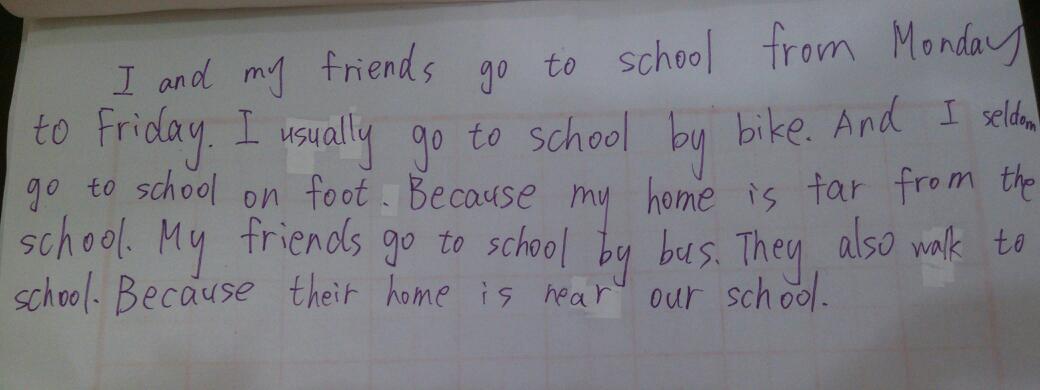 I and my friends go to school from Monday
to Friday. I usually go to school by bike. And I seldom
go to school on foot. Because my home is far from the
school. My friends go to school by bus. They also walk to
school. Because their home is near our school.